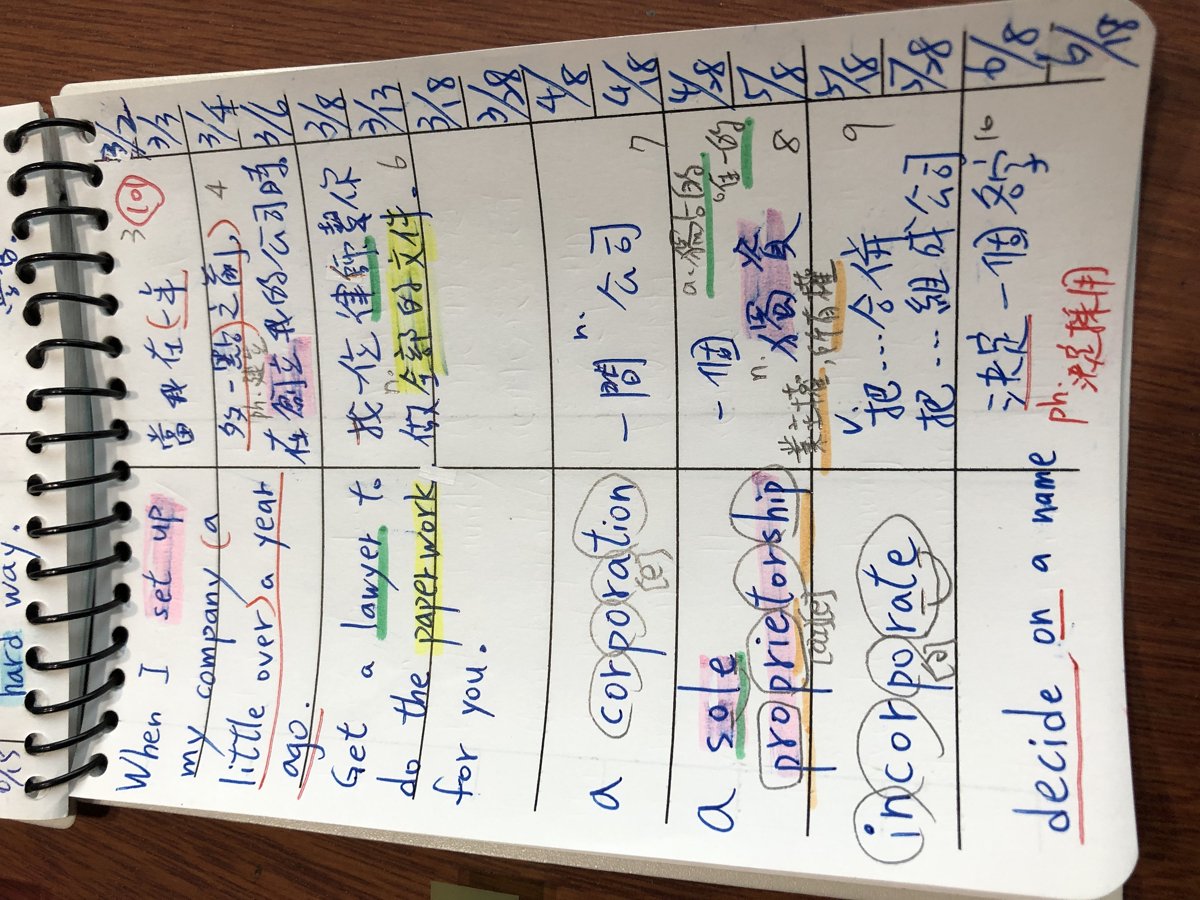 hard way.
When I set up
my company (a
little over) a year
ago.
3 109
當我在(一年
多一點)之前,
ph. 建立
在創立我的公司時
4
Get a lawyer to
do the paperwork
for you.
找一位律師幫你
n.
做全部的文件.
6
a corporation
[e]
n.
一間 公司
7
a sole
proprietorship
[aɪə]
a. 獨占的
唯一的
一個
n.
獨資
8
業主權,所有權
incorporate
[ə]
v.
把...合併
把...組成公司
9
decide on a name
決定一個名字
10
ph. 決定採用
3/2
3/3
3/4
3/6
3/8
3/13
3/18
3/28
4/8
4/18
4/28
5/8
5/18
5/28
6/8
6/18